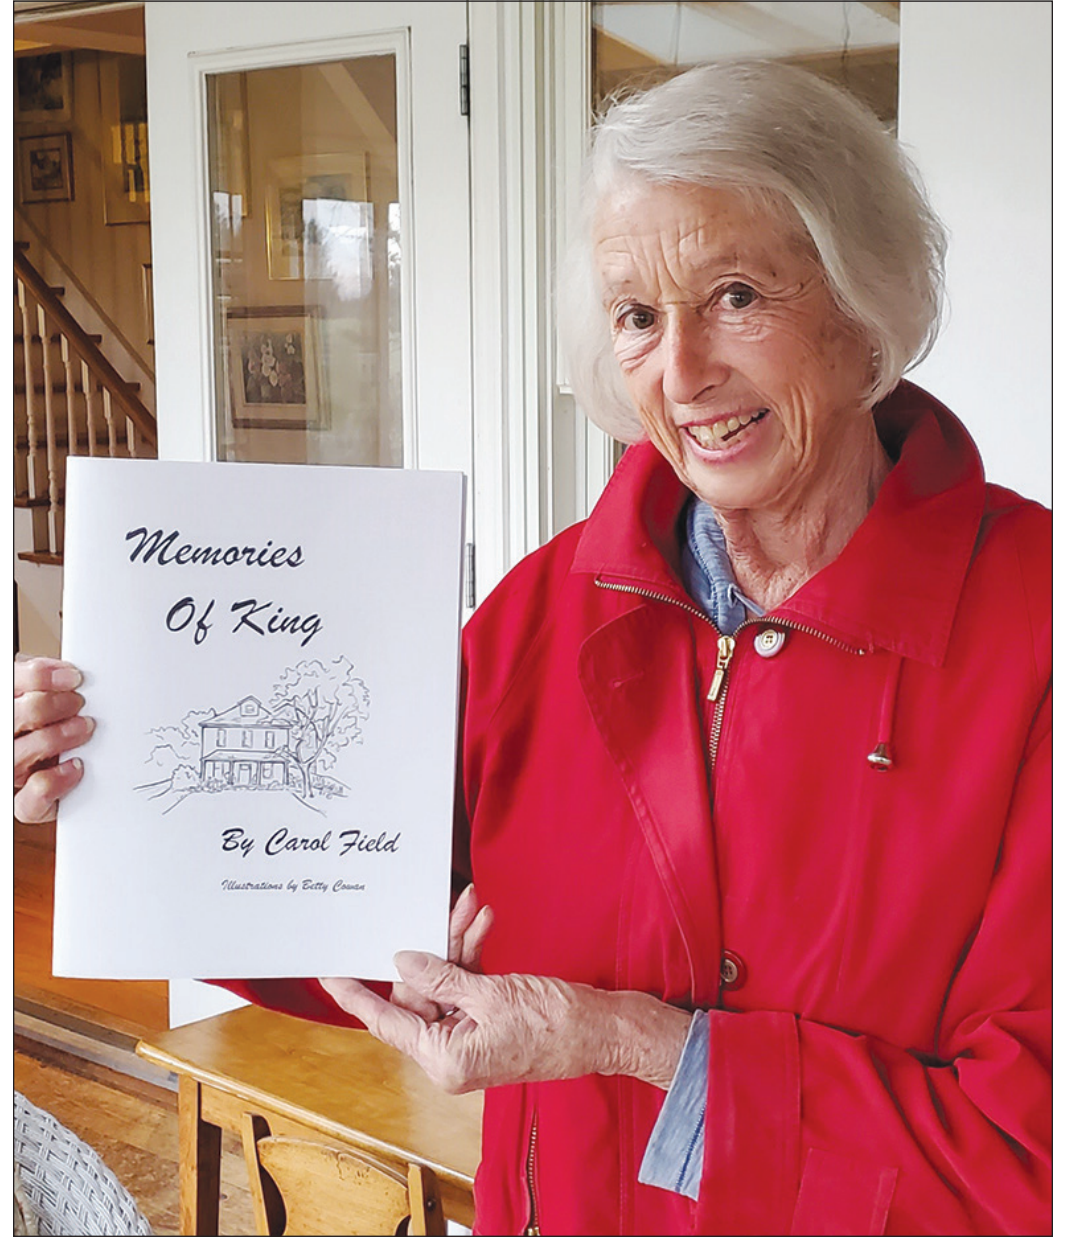 Memories
Of King
By Carol Field
Illustrations by Betty Cowan